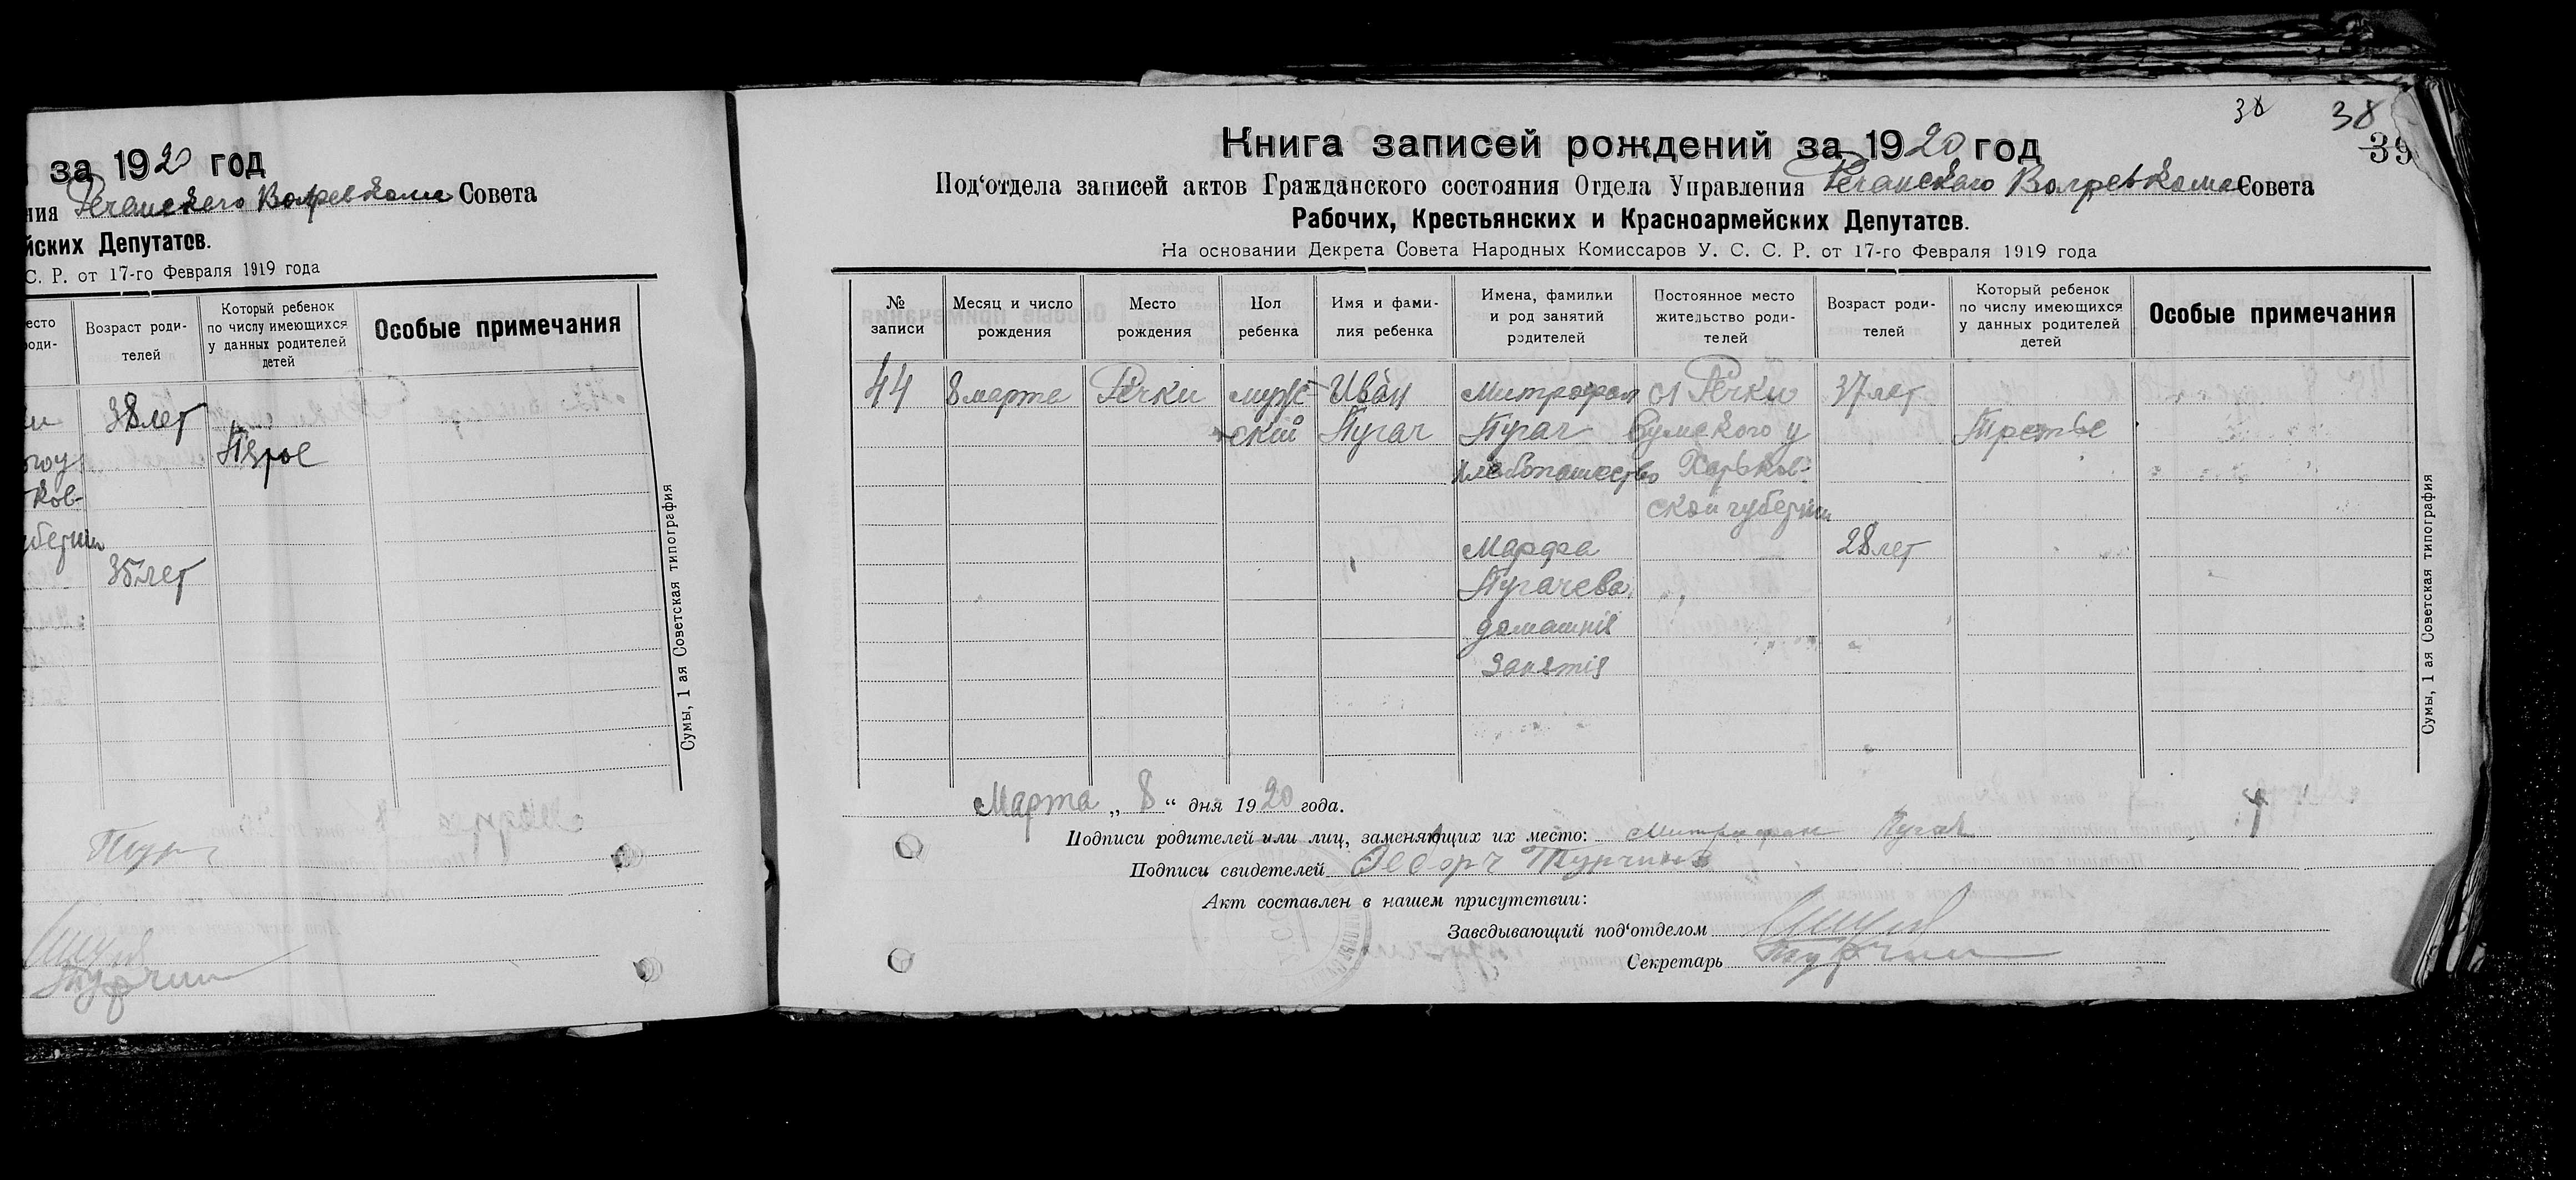 за 1920 год
ния Речанского Волревкома Совета
йских Депутатов.
С. Р. от 17-го Февраля 1919 года
есто
оди-
Возраст роди-
телей
Который ребенок
по числу имеющихся
у данных родителей
детей
Особые примечания
38 лет
ков-
уберии
35 лет
Сумы, 1 ая Советская типография
Турчин
38 38
39
Книга записей рождений за 1920 год
Под‘отдела записей актов Гражданского состояния Отдела Управления Речанского Волревкома Совета
Рабочих, Крестьянских и Красноармейских Депутатов.
На основании Декрета Совета Народных Комиссаров У. С. С. Р. от 17-го Февраля 1919 года
№
записи
Месяц и число
рождения
Место
рождения
Пол
ребенка
Имя и фами-
лия ребенка
Имена, фамилии
и род занятий
родителей
Постоянное место
жительство роди-
телей
Возраст роди-
телей
Который ребенок
по числу имеющихся
у данных родителей
детей
Особые примечания
44 8 марта Речки мужс- Иван Митрофан сл Речки 37 лет
ский Пугач Пугач Сумского у Третье
хлебопашество Харьков-
ской губернии
Марфа 28 лет
Пугачева
домашнія
занятія
Сумы, 1 ая Советская типография
Марта „ 8 “ дня 1920 года.
Подписи родителей или лиц, заменяющих их место: Митрофан Пугач
Подписи свидетелей Федоръ Турчинов
Акт составлен в нашем присутствии:
Заведывающий под‘отделом
Секретарь Турчин